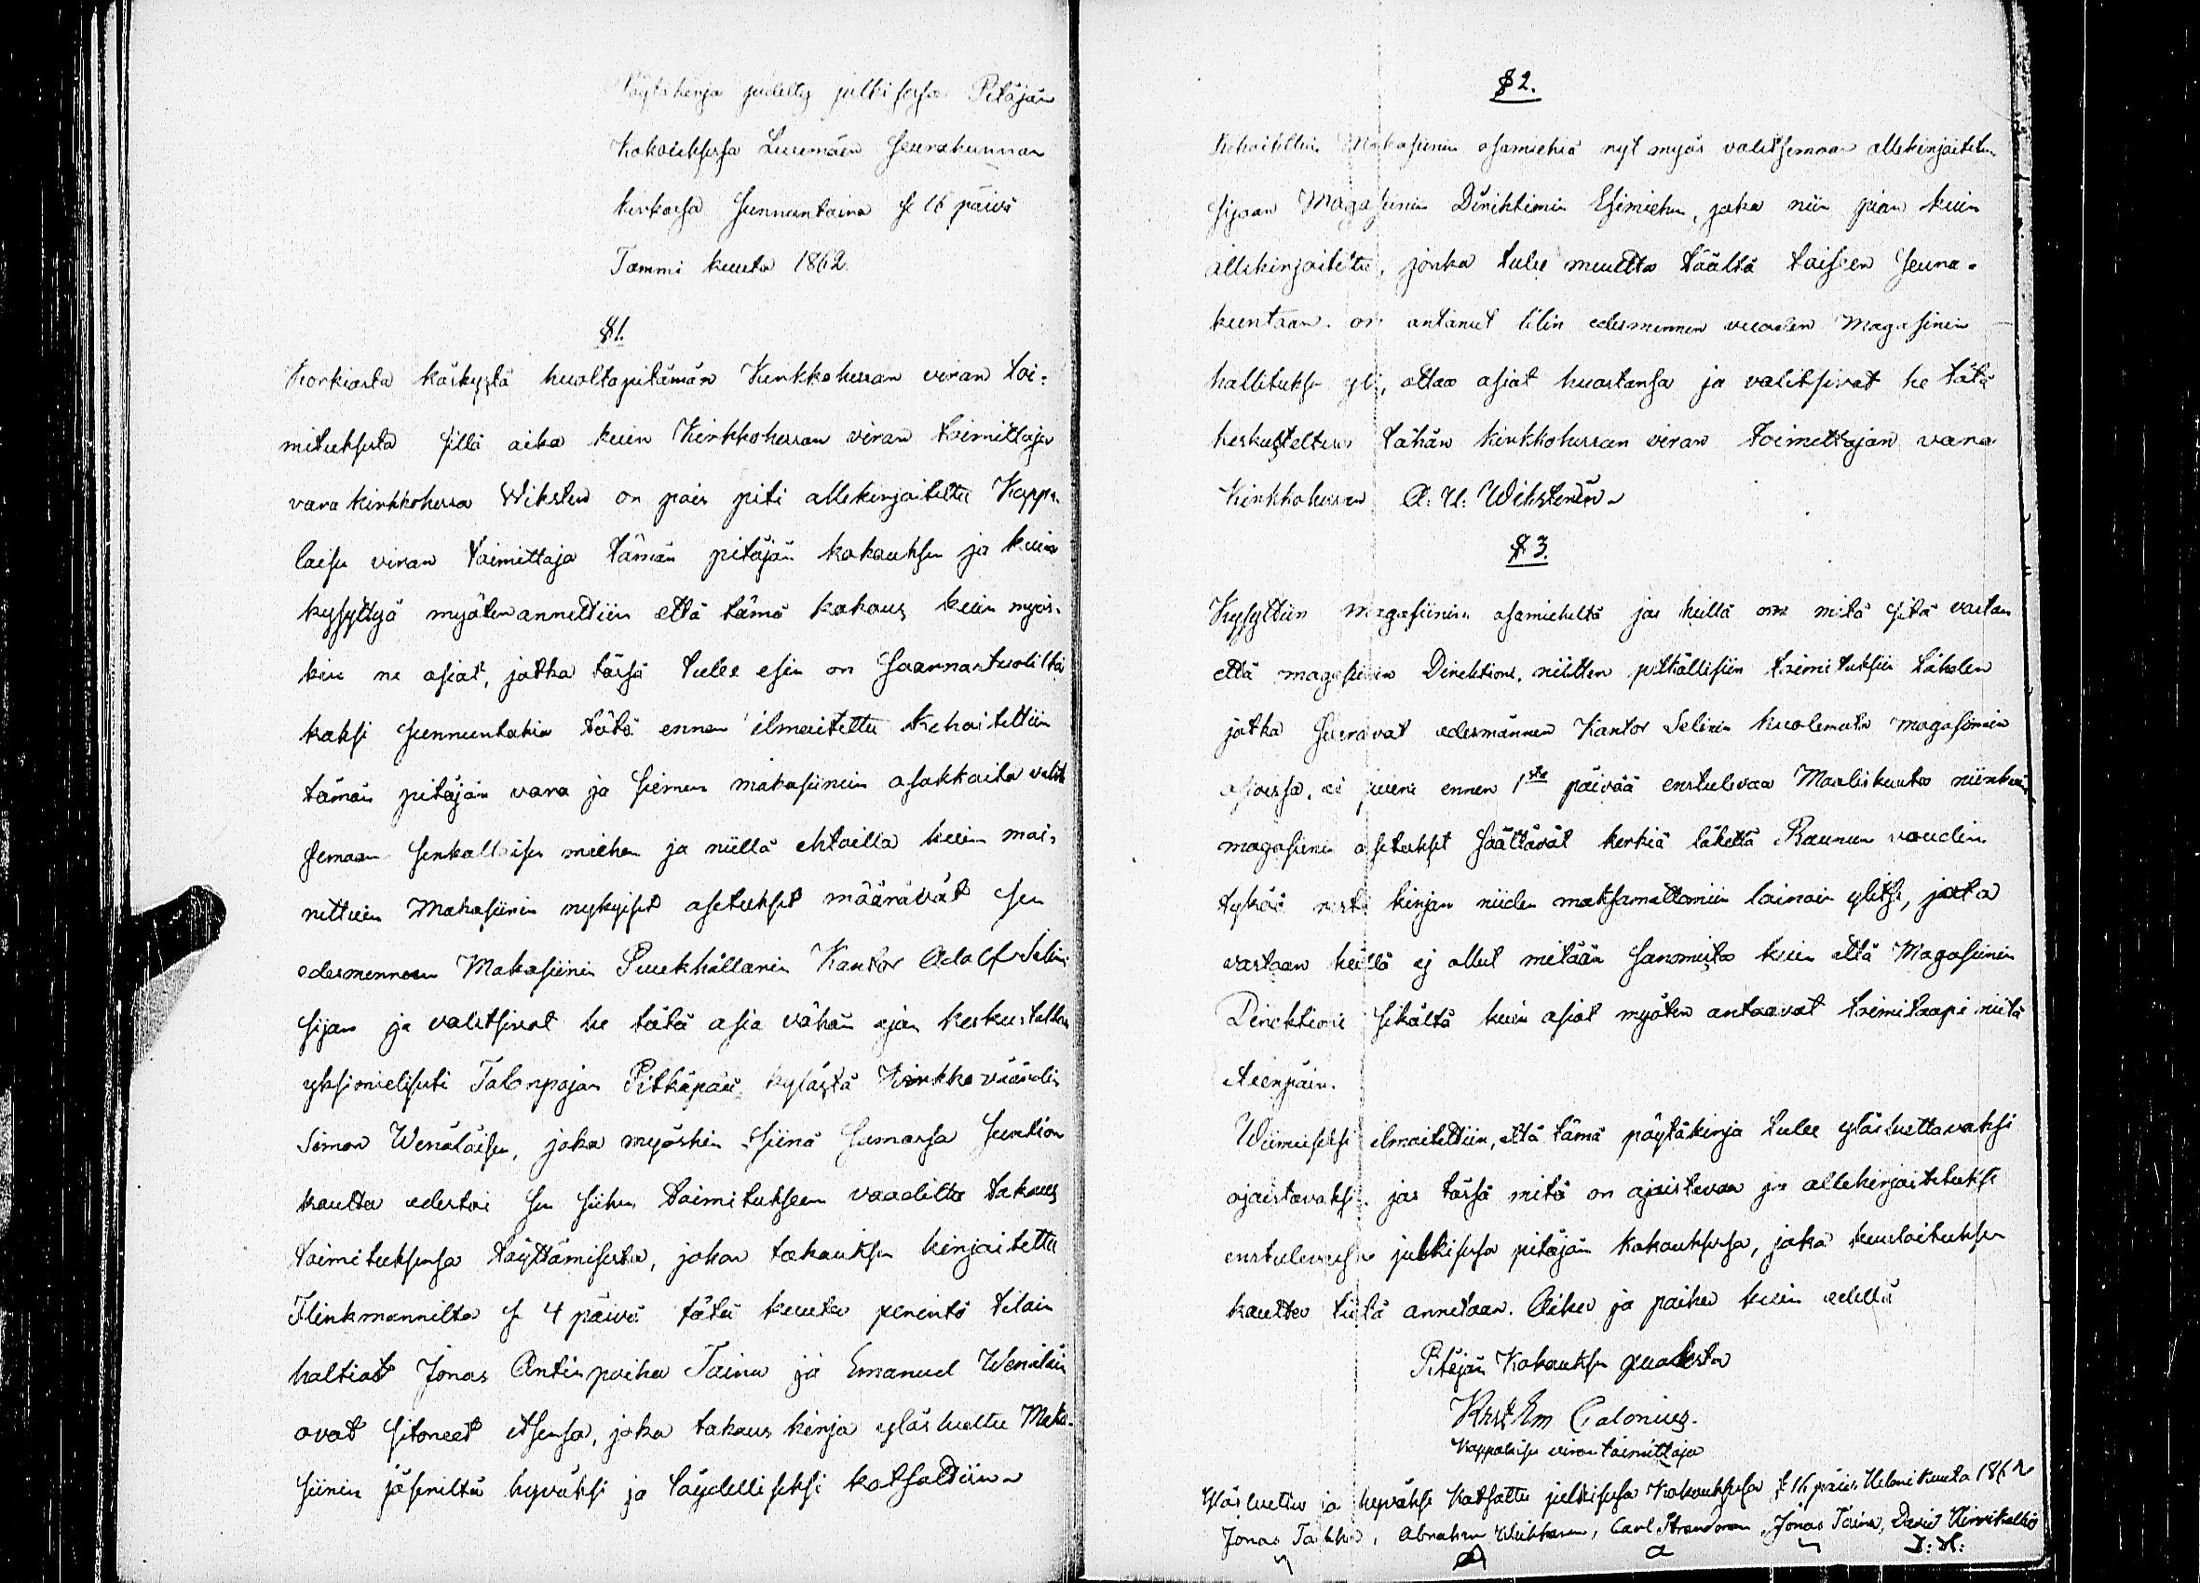 Pöytäkirja pidetty julkisessa Pitäjän
Kokouksessa Luumäen Seurakunnan
kirkossa Sunnuntaina se 16 päivä
Tammi kuuta 1862
§1.
Korkiasta käskystä huoltapitämän Kirkkoherran viran toi-
mituksesta sillä aika kuin Kirkkoherran viran toimittaja
vara kirkkoherra Wiksten on pois piti allekirjoitettu Kappa-
laisen viran toimittaja tämän pitäjän kokouksen ja kuin
kysyttyä myöten annettiin että tämä kokous kuin myös-
kin ne asiat, jotka tässä tulee esiin on Saarnastuolilta
kaksi sunnuntakia tätä ennen ilmoitettu kehoitettiin
tämän pitäjän vara ja siemen makasiinin osakkaita valit-
semaan senkaltaisen miehen ja niillä ehtoilla kuin mai-
nittuin Makasiinin nykyiset asetukset määräävät sen
edesmenneen Makasiinin Puukhållarin Kantor Adolf Selin
sijan ja valitsivat he tätä asia vähän ajan keskusteltua
yksimielisesti Talonpojan Pitkäpää kylästä Kirkkoväärdin
Simon Wenäläisen, joka myöskin siinä samassa Suntion
kautta edestoi sen siihen toimitukseen vaaditta takaus
toimituksensa täyttämisestä, johon takauksen kirjoitettu
Flinkmannilta se 4 päivä tätä kuuta perintö tilain
haltiat Jonas Antinpoika Taina ja Emanuel Wenäläin
ovat sitoneet itsensä, joka takaus kirja ylösluettu Maka-
siinin jäseniltä hyväksi ja täydelliseksi katsottiin
§2.
Kehoitettiin Makasiinin osamiehiä nyt myös valitsemaan allekirjoitetun
sijaan Magasiinin Direktionin Esimiehen, joka niin pian kuin
allekirjoitettu, jonka tulee muutta täältä toiseen Seura-
kuntaan. on antanut tilin edesmennen vuoden Magasinin
hallituksen yli, ottaa asiat huostansa ja valitsivat he tätä
keskusteltua tähän kirkkoherran viran toimittajan vara
Kirkkoherran A: U: Wikstenin
§3.
Kysyttiin magasiinin osamiehiltä jos heillä on mitä sitä vastan
että magasiinin Direktioni, niitten pitkällisiin toimituksiin tähden
jotka seuravat edesmännen Kantor Selinin kuolemata magasiinin
asioissa, ei juuri ennen 1stä päivää enstulevaa Maaliskuuta niinkuin
magasiini asetukset säättävät kerkiä lähettä Ruunun voudin
tykö rästi kirjan niiden maksamattomiin lainain ylitse, jota
vastaan heillä ej ollut mitään sanomista kuin että Magasiinin
Direktioni sikältä kuin asiat myöten antaavat toimitaapi niitä
eteenpäin.
Wiimeiseksi ilmoitettiin, että tämä pöytäkirja tulee ylösluettavaksi
ojaistavaksi. jos tässä mitä on ojaistavaa ja allekirjoitetuksi
enstulevassa julkisessa pitäjän kokouksessa, joka kuuloituksen
kautta tietä annetaan. Aika ja paikka kuin edellä
Pitäjän Kokouksen puolesta
Krist Em Calonius.
Kappalaisen viran toimittaja
Ylösluettu ja hyväksi katsottu julkisessa Kokouksessa se 16 päivä Helmi kuuta 1862
Jonas Taikka, Abraham Weikkanen, Carl Strandman, Jonas Taina, David Hirvikallio
D: H: